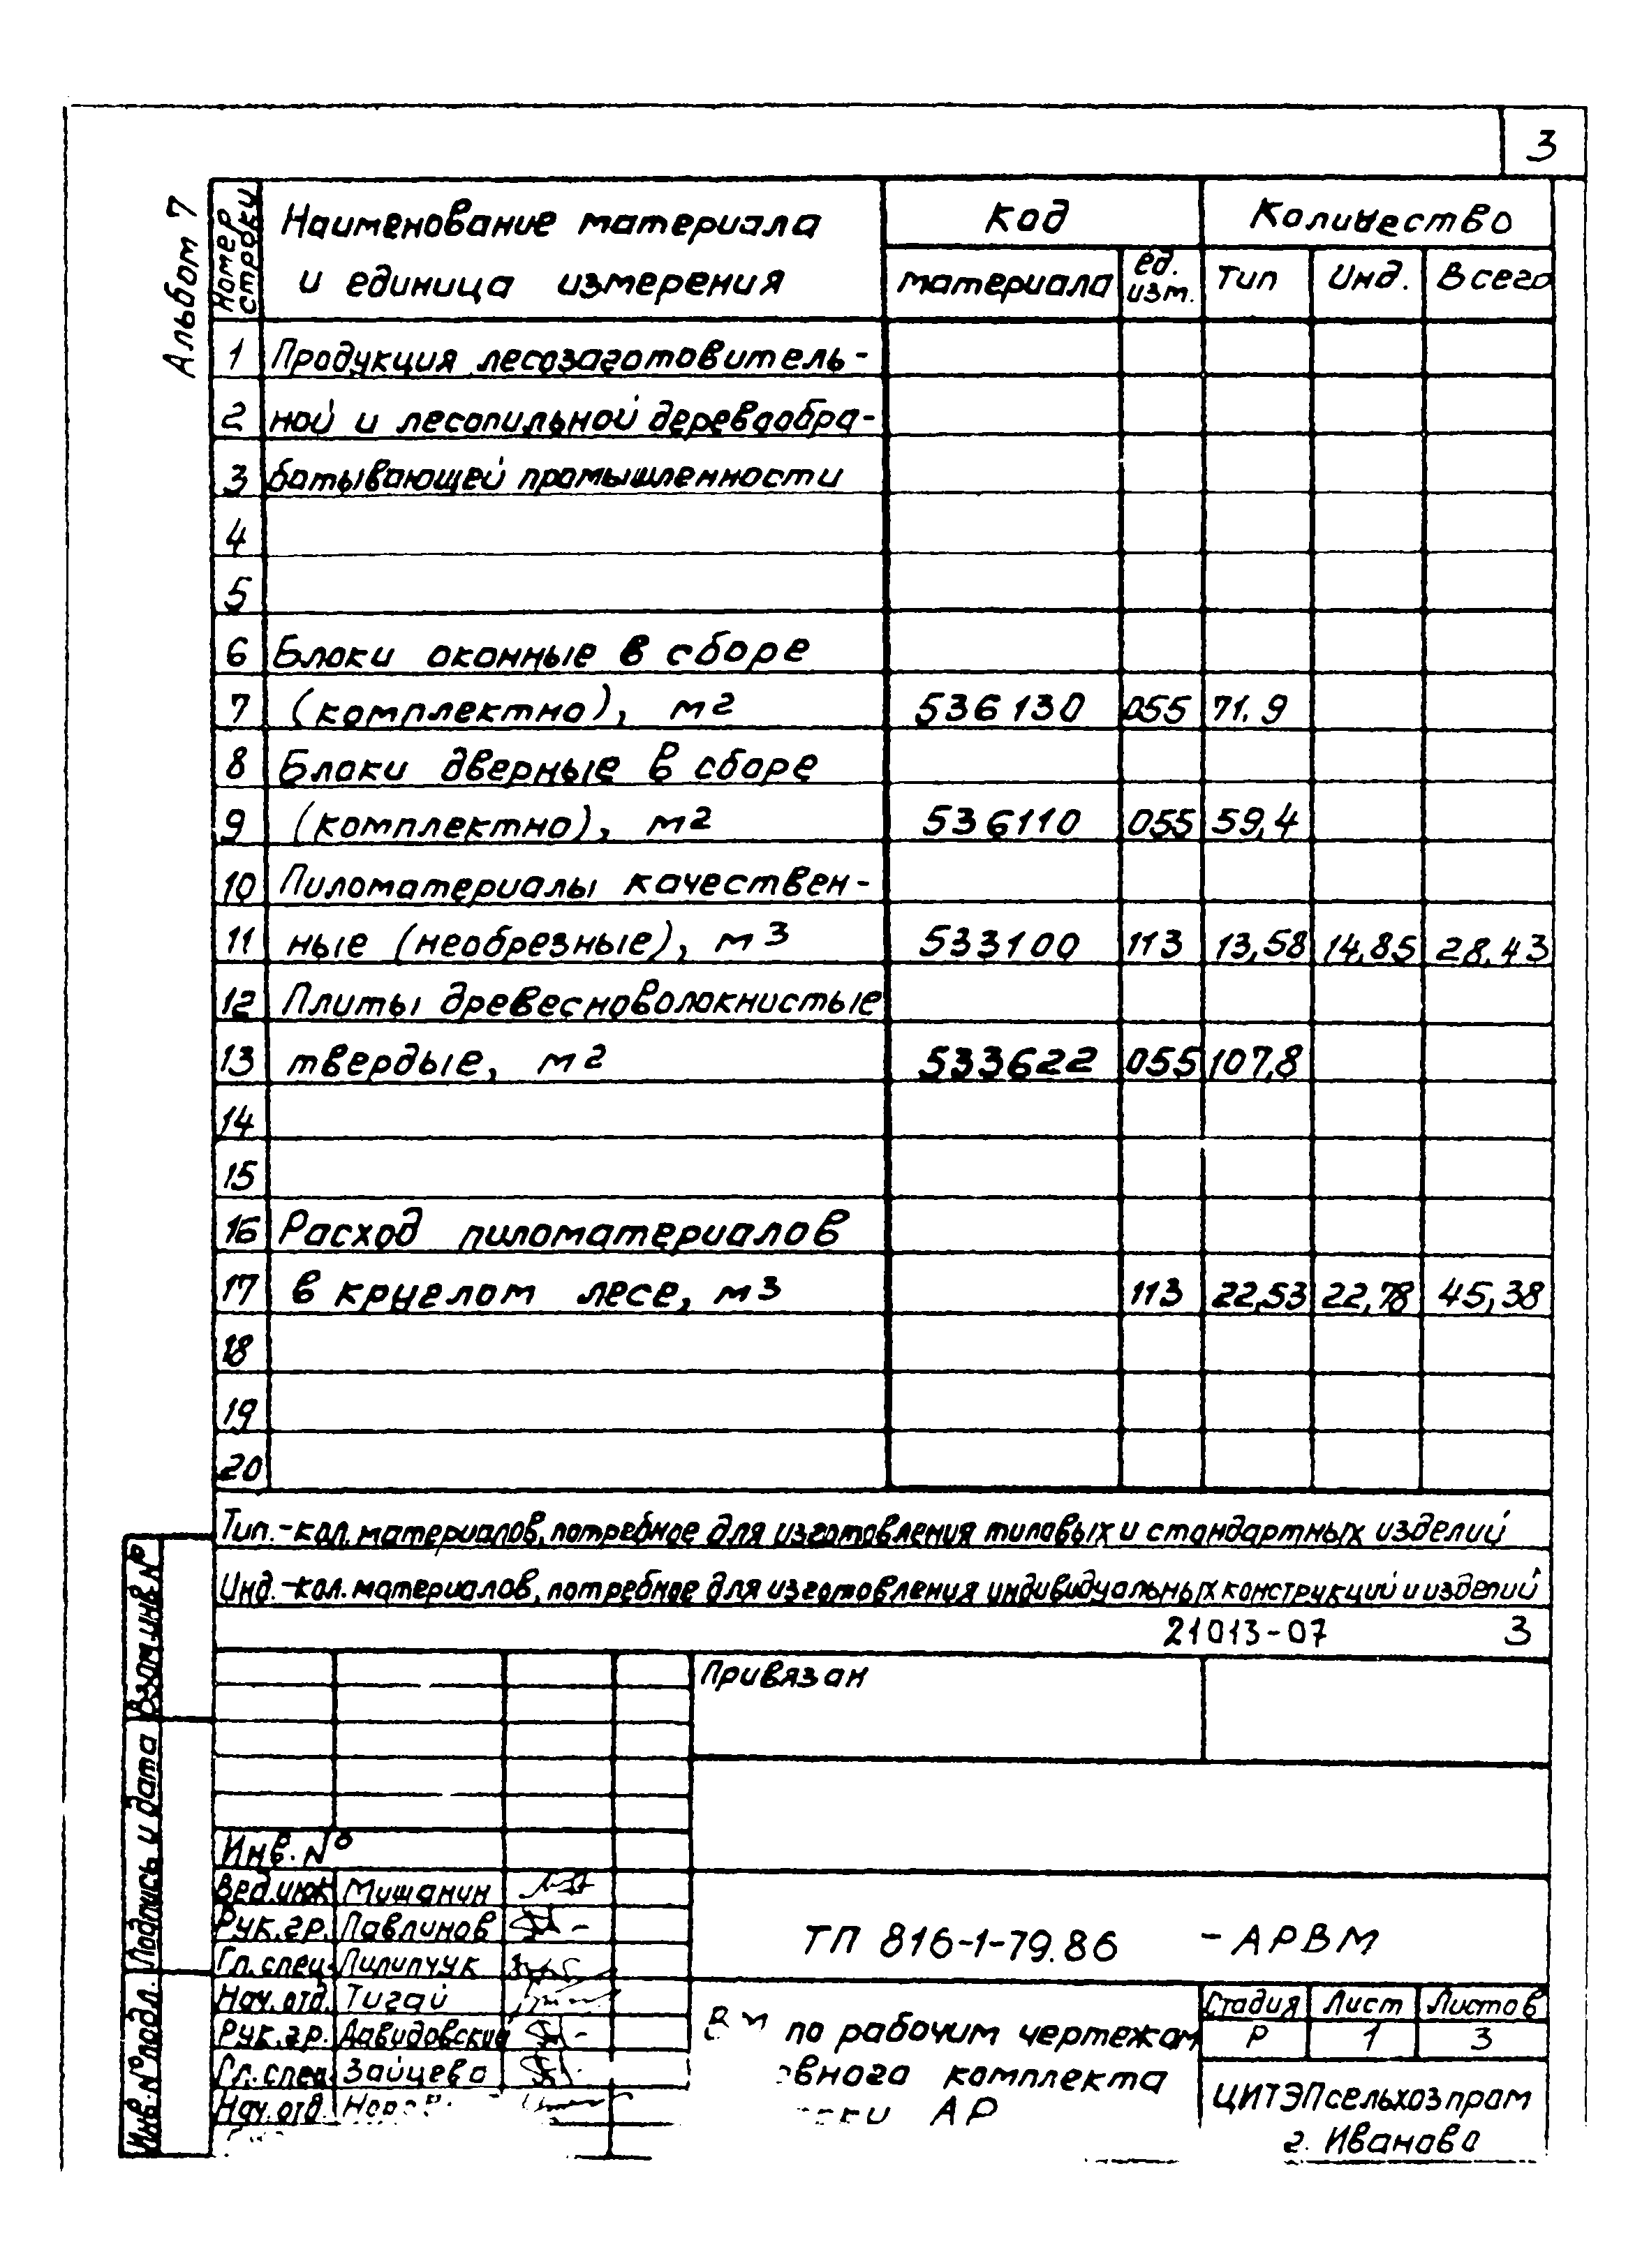 3
Альбом 7
Номер строки
Наименование материала
и единица измерения
Код
Количество
материала
ед. изм.
Тип
Инд.
Всего
1 Продукция лесозаготовитель-
2 ной и лесопильной деревообра-
3 батывающей промышленности
4
5
6 Блоки оконные в сборе
7 (комплектно), м2 536130 055 71.9
8 Блоки дверные в сборе
9 (комплектно), м2 536110 055 59,4
10 Пиломатериалы качествен-
11 ные (необрезные), м3 533100 113 13,58 14,85 28,43
12 Плиты древесноволокнистые
13 твердые, м2 533622 055 107,8
14
15
16 Расход пиломатериалов
17 в круглом лесе, м3 113 22,53 22,78 45,38
18
19
20
Тип.-кол. материалов, потребное для изготовления типовых и стандартных изделий
Инд.-кол. материалов, потребное для изготовления индивидуальных конструкций и изделий
21013-07 3
Взам.инв.№
Подпись и дата
Инв.№подл.
Привязан
Инв.№
Вед.инж. Мишанин
Рук.гр. Павлинов
Гл.спец. Пилипчук
Нач.отд. Тигай
Рук.гр. Давидовский
Гл.спец. Зайцева
Нач.отд.
ТП 816-1-79.86 -АРВМ
ВМ по рабочим чертежам
комплекта
АР
Стадия Лист Листов
Р 1 3
ЦИТЭПсельхозпром
г. Иваново